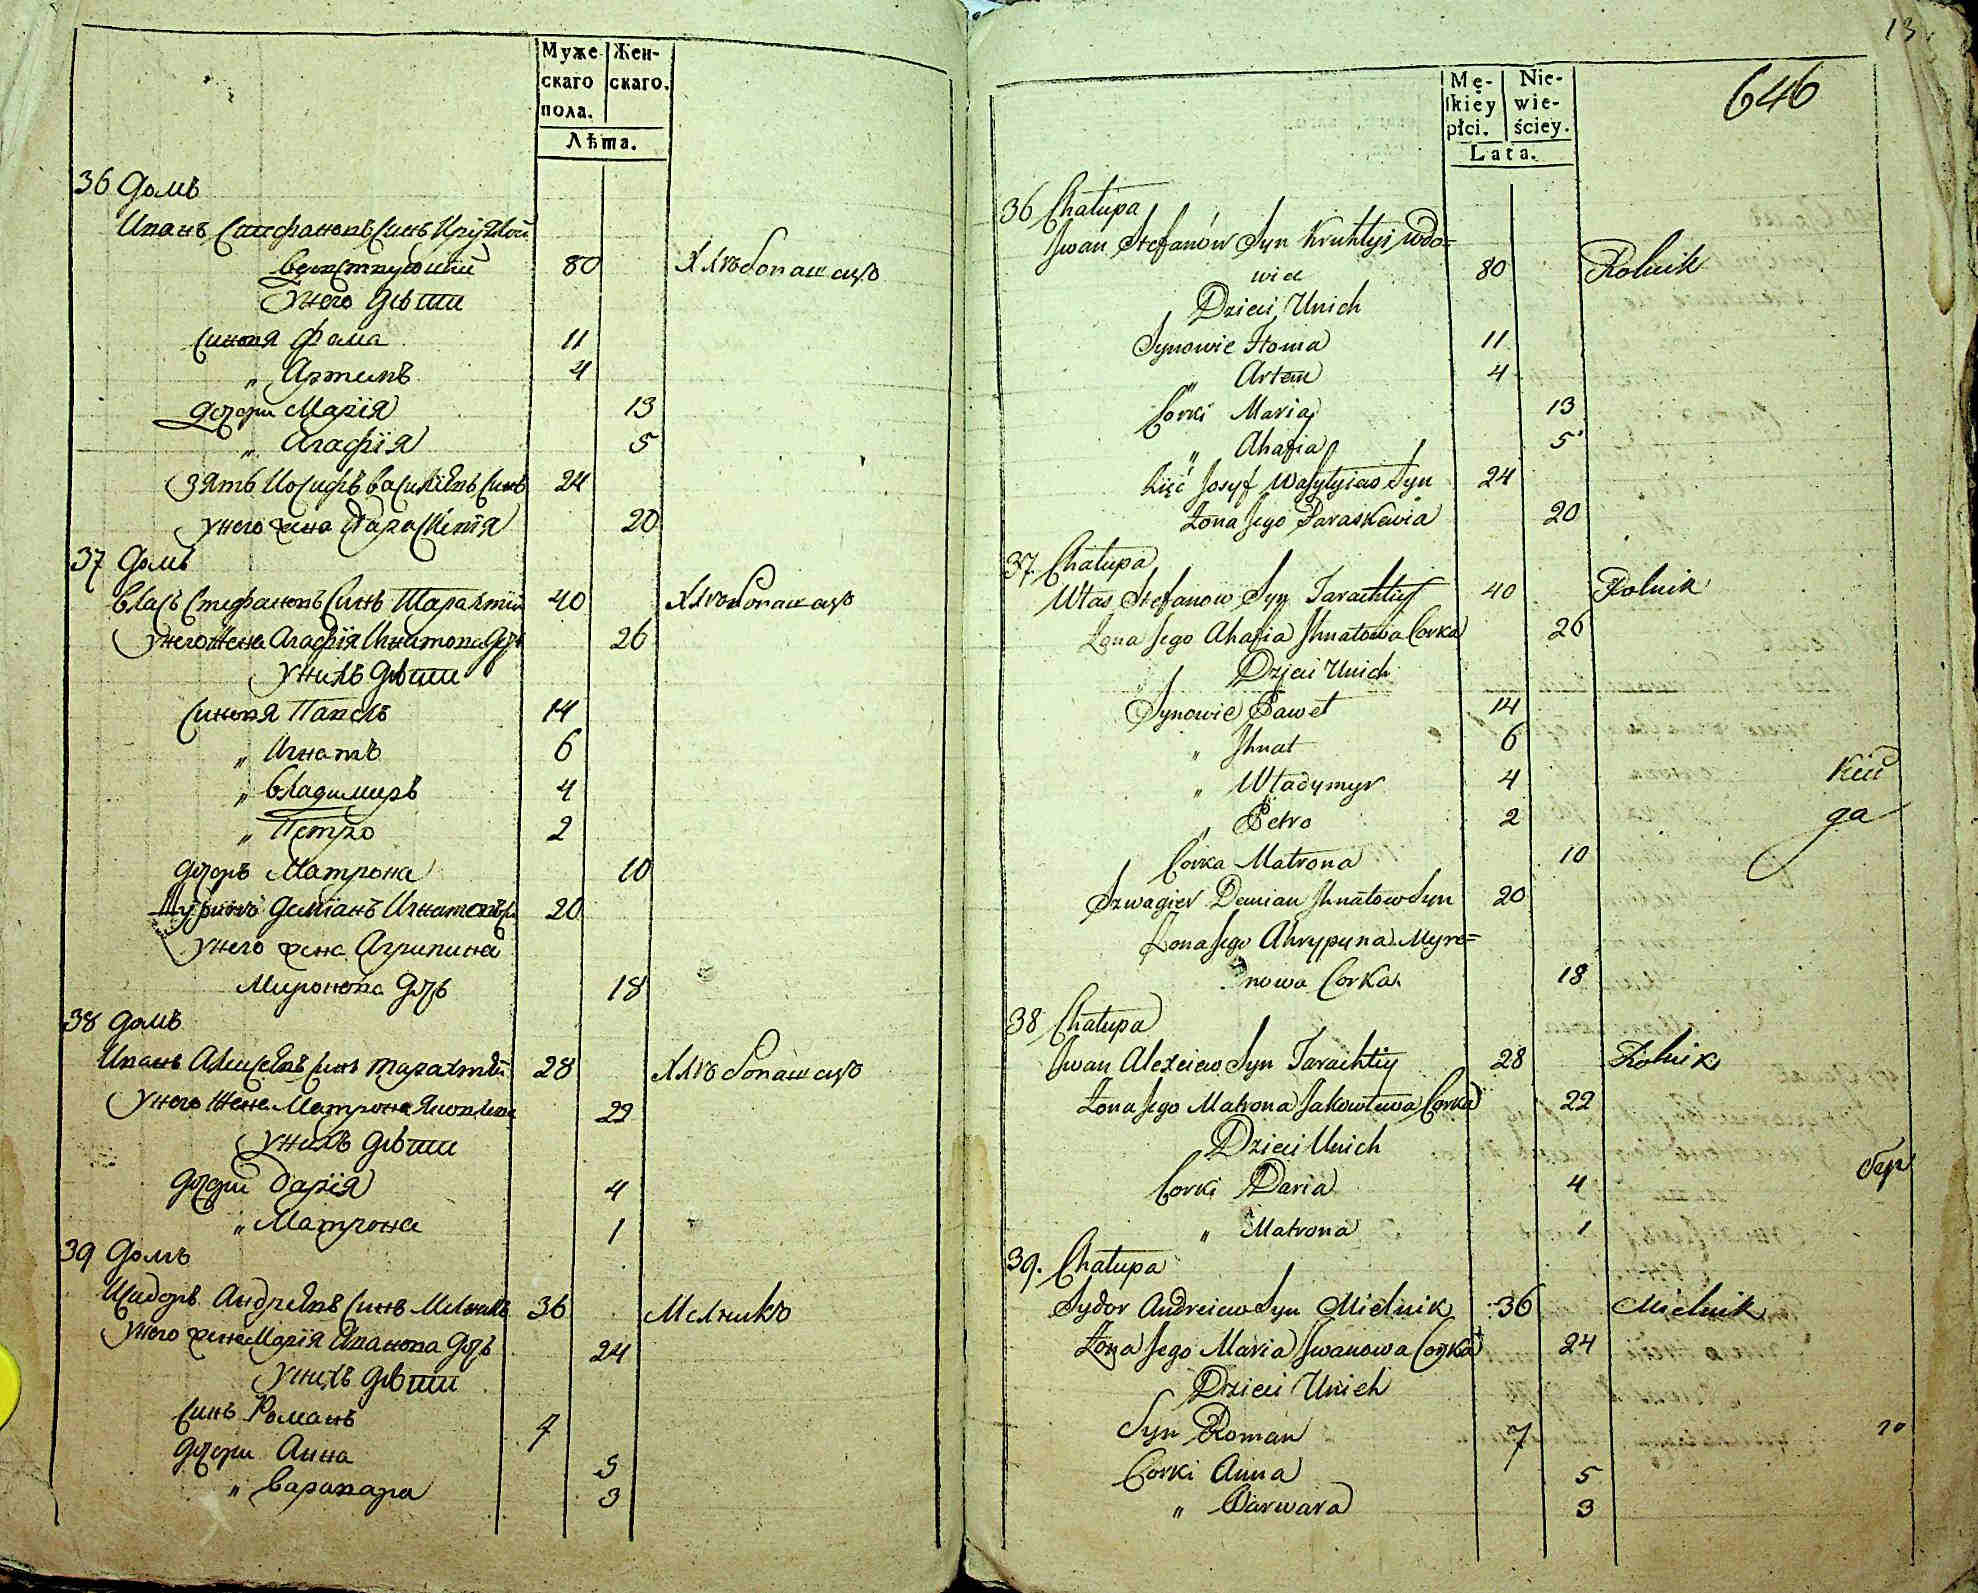 Муже-
скаго
пола.
Жен-
скаго.
Лѣта.
36 домъ
Иванъ Стефановъ синъ Круглой
вдовствующий 80 Хлѣбопашецъ
у него дѣти
синовя Фома 11
„ Артемъ 4
дочери Марїя 13
„ Агафїя 5
зять Иосифъ Василїевъ синъ 24
у него жена Параскевїя 20
37 домъ
Власъ Стефановъ синъ Тарахтїй 40 Хлѣбопашецъ
у него жена Агафїя Игнатова дочь 26
у нихъ дѣти
синовя Павелъ 14
„ Игнатъ 6
„ Владимиръ 4
„ Петро 2
дочерь Матрона 10
Шуринъ Демїанъ Игнатовъ 20
у него жена Агрипина
Миронова дочь 18
38 домъ
Иванъ Алексѣевъ синъ Тарахтїй 28 Хлѣбопашецъ
у него жена Матрона Яковлева 22
у нихъ дѣти
дочери Дарїя 4
„ Матрона 1
39 домъ
Сидоръ Андреевъ синъ Мелникъ 36 Мелникъ
у него жена Марїя Иванова дочь 24
у нихъ дѣти
синъ Романъ 7
дочери Анна 5
„ Варвара 3
13.
646
Mę-
ſkiey
płci.
Nie-
wie-
ściey.
Lata.
36 Chałupa
Iwan Stefanów Syn Kruhłyi Wdo=
wiec 80 Rolnik
Dzieci Unich
Synowie Homa 11
„ Artem 4
Corki Maria 13
„ Ahafia 5
Zięć Josyf Wasylyiew Syn 24
Żona Jego Paraskewia 20
37. Chałupa
Włas Stefanow Syn Tarachtiy 40 Rolnik
Żona Jego Ahafia Ihnatowa Corka 26
Dzieci Unich
Synowie Paweł 14
„ Ihnat 6
„ Władymyr 4
„ Petro 2
Corka Matrona 10
Szwagier Demian Ihnatow Syn 20
Żona Jego Ahrypyna Myro=
nowa Corka 18
38 Chałupa
Iwan Alexeiew Syn Tarachtiy 28 Rolnik
Żona Jego Matrona Jakowłewa Corka 22
Dzieci Unich
Corki Daria 4
„ Matrona 1
39. Chałupa
Sydor Andreiew Syn Mielnik 36 Mielnik
Żona Jego Maria Iwanowa Corka 24
Dzieci Unich
Syn Roman 7
Corki Anna 5
„ Warwara 3
кїй
да